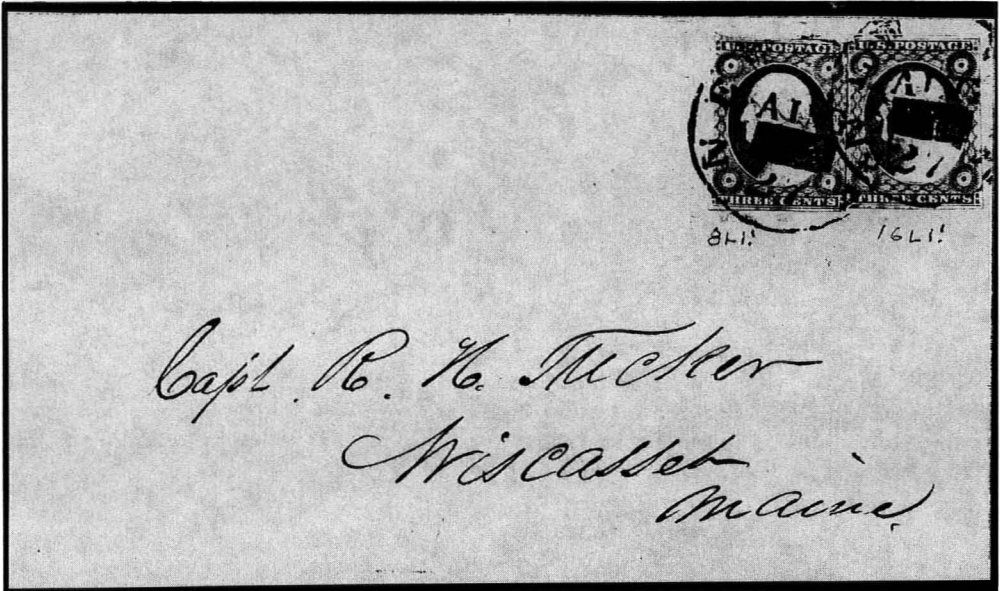 U.S. POSTAGE U.S. POSTAGE
THREE CENTS THREE CENTS
8L1! 16L1!
Capt. R. H. Tucker
Wiscasset
Maine